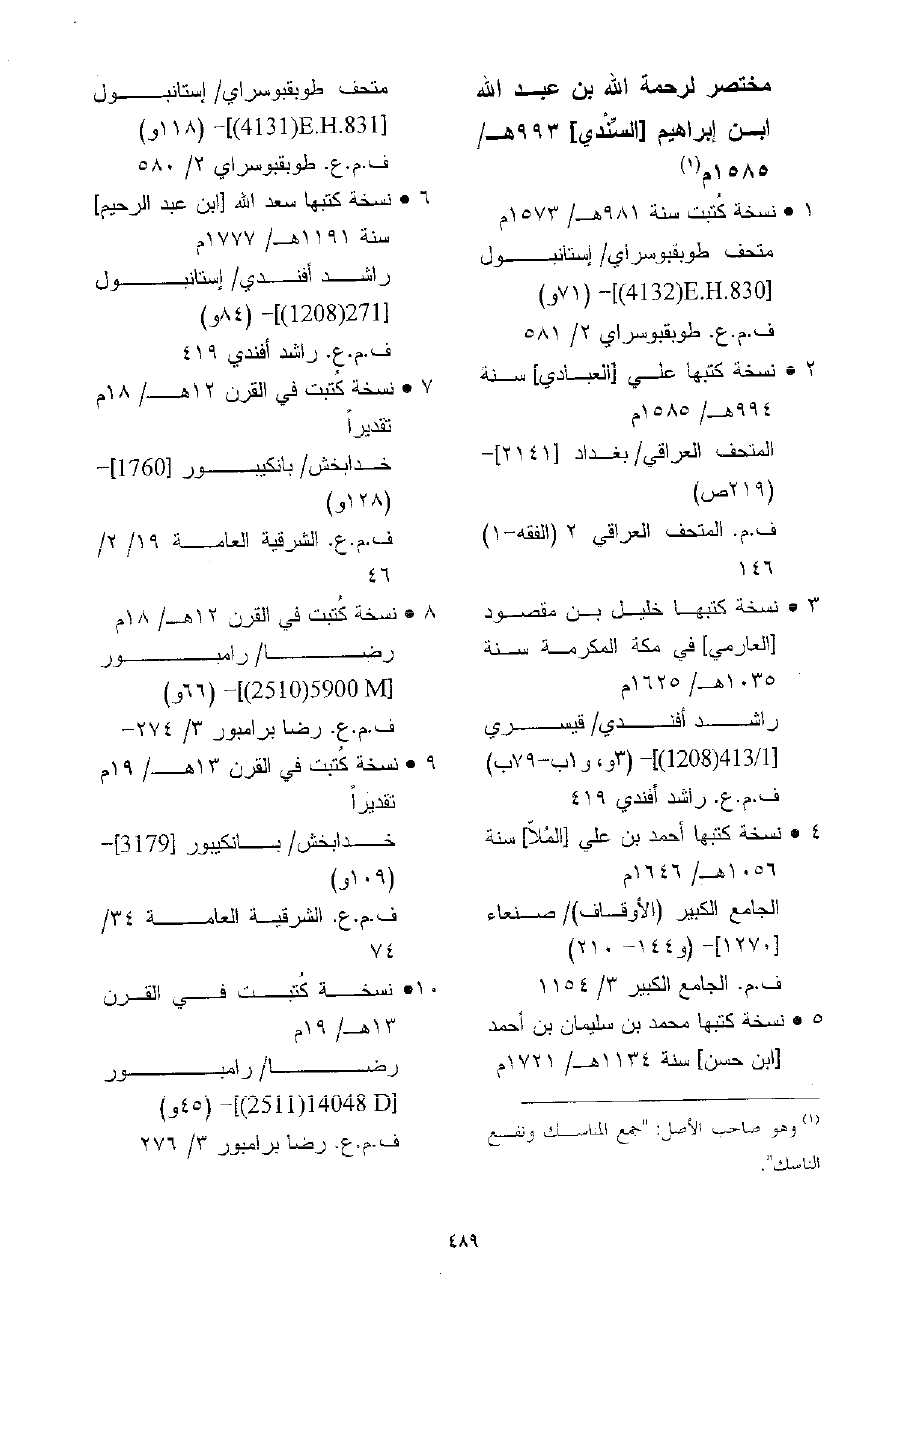 مختصر لرحمة الله بن عبد الله
ابن إبراهيم [السِّنْدي] ٩٩٣هـ/
١٥٨٥م(١)
١ • نسخة كُتبت سنة ٩٨١هـ/ ١٥٧٣م
متحف طوبقبوسراي/ إستانبول
[E.H.830(4132)]– (٧١و)
ف.م.ع. طوبقبوسراي ٢/ ٥٨١
٢ • نسخة كتبها علي [العبادي] سنة
٩٩٤هـ/ ١٥٨٥م
المتحف العراقي/ بغداد [٢١٤١]–
(٢١٩ص)
ف.م. المتحف العراقي ٢ (الفقه–١)
١٤٦
٣ • نسخة كتبها خليل بن مقصود
[العارمي] في مكة المكرمة سنة
١٠٣٥هـ/ ١٦٢٥م
راشد أفندي/ قيسري
[413/1(1208)]– (٣و، و١ب–٧٩ب)
ف.م.ع. راشد أفندي ٤١٩
٤ • نسخة كتبها أحمد بن علي [المُلاّ] سنة
١٠٥٦هـ/ ١٦٤٦م
الجامع الكبير (الأوقاف)/ صنعاء
[١٢٧٠]– (و١٤٤– ٢١٠)
ف.م. الجامع الكبير ٣/ ١١٥٤
٥ • نسخة كتبها محمد بن سليمان بن أحمد
[ابن حسن] سنة ١١٣٤هـ/ ١٧٢١م
(١) وهو صاحب الأصل: "جمع المناسك ونفع
الناسك".
متحف طوبقبوسراي/ إستانبول
[E.H.831(4131)]– (١١٨و)
ف.م.ع. طوبقبوسراي ٢/ ٥٨٠
٦ • نسخة كتبها سعد الله [ابن عبد الرحيم]
سنة ١١٩١هـ/ ١٧٧٧م
راشد أفندي/ إستانبول
[271(1208)]– (٨٤و)
ف.م.ع. راشد أفندي ٤١٩
٧ • نسخة كُتبت في القرن ١٢هـ/ ١٨م
تقديراً
خدابخش/ بانكيبور [1760]–
(١٢٨و)
ف.م.ع. الشرقية العامة ١٩/ ٢/
٤٦
٨ • نسخة كُتبت في القرن ١٢هـ/ ١٨م
رضا/ رامبور
[5900 M(2510)]– (٦٦و)
ف.م.ع. رضا برامبور ٣/ ٢٧٤–
٩ • نسخة كُتبت في القرن ١٣هـ/ ١٩م
تقديراً
خدابخش/ بانكيبور [3179]–
(١٠٩و)
ف.م.ع. الشرقية العامة ٣٤/
٧٤
١٠• نسخة كُتبت في القرن
١٣هـ/ ١٩م
رضا/ رامبور
[14048 D(2511)]– (٤٥و)
ف.م.ع. رضا برامبور ٣/ ٢٧٦
٤٨٩